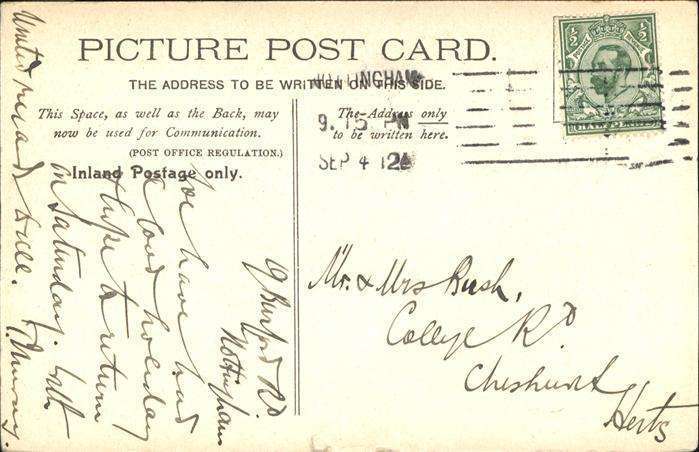 PICTURE POST CARD.
THE ADDRESS TO BE WRITTEN ON THIS SIDE.
This Space, as well as the Back, may
now be used for Communication.
(POST OFFICE REGULATION.)
Inland Postage only.
The Address only
to be written here.
NOTTINGHAM
9. 15 PM
SEP 4 12
½ ½
HALFPENNY
Mr. & Mrs Bush,
College Rd
Cheshunt
Herts
9 Burford Rd.
Nottingham
We have had
a good holiday
hope to return
on Saturday. with
United